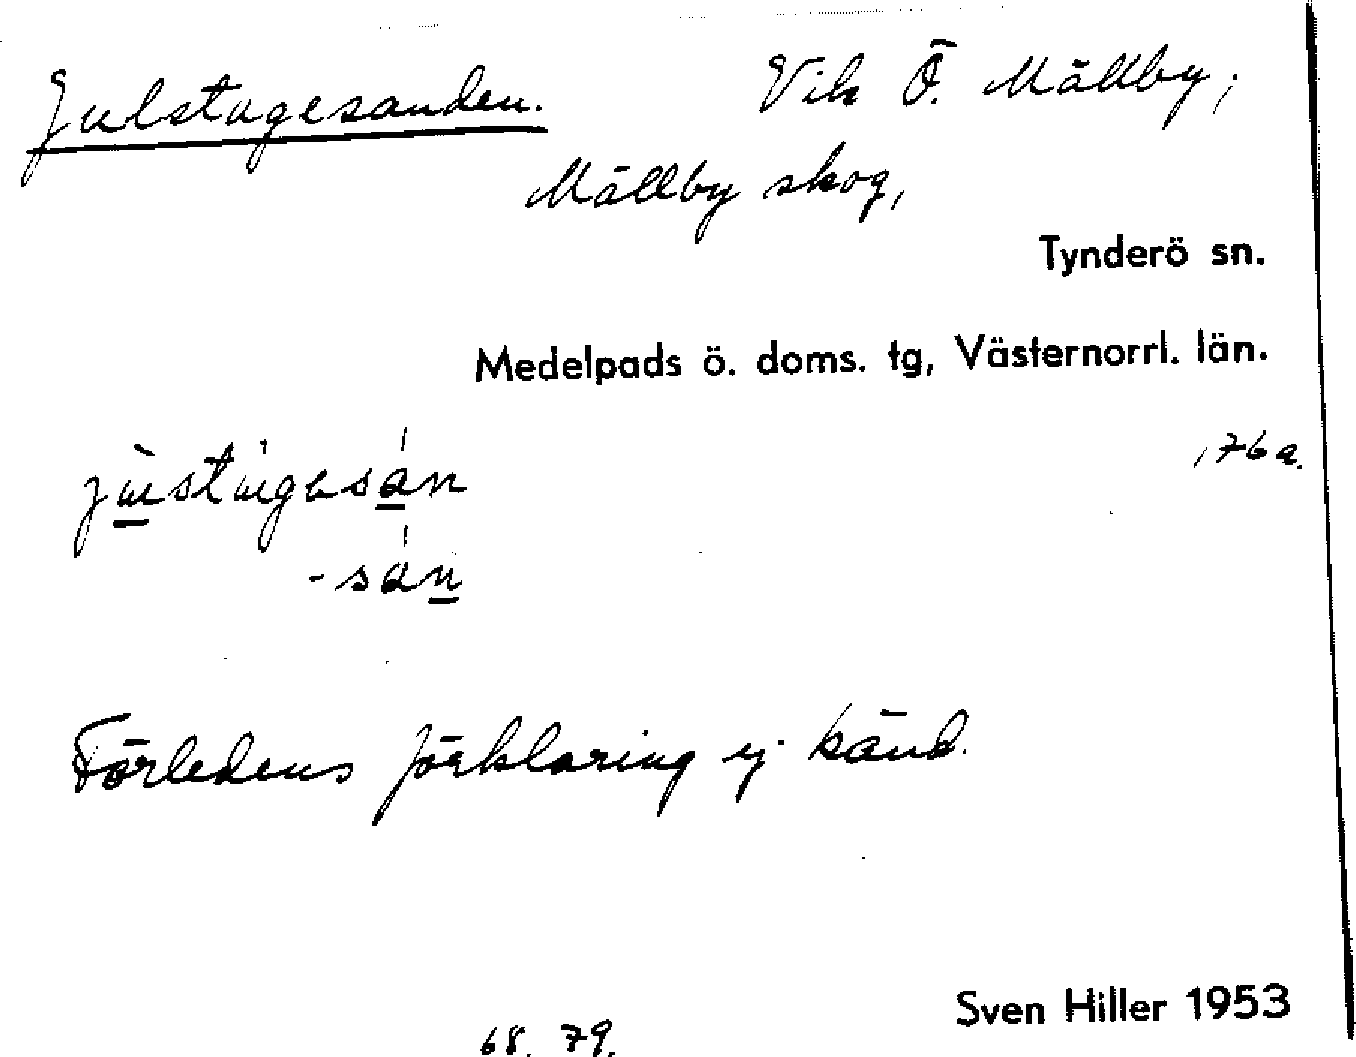 Julstugesanden. Vik Ö. Mällby,
Mällby skog,
Tynderö sn.
Medelpads ö. doms. tg, Västernorrl. län.
176 a.
-sán
Förledens förklaring ej känd.
Sven Hiller 1953
68. 79.